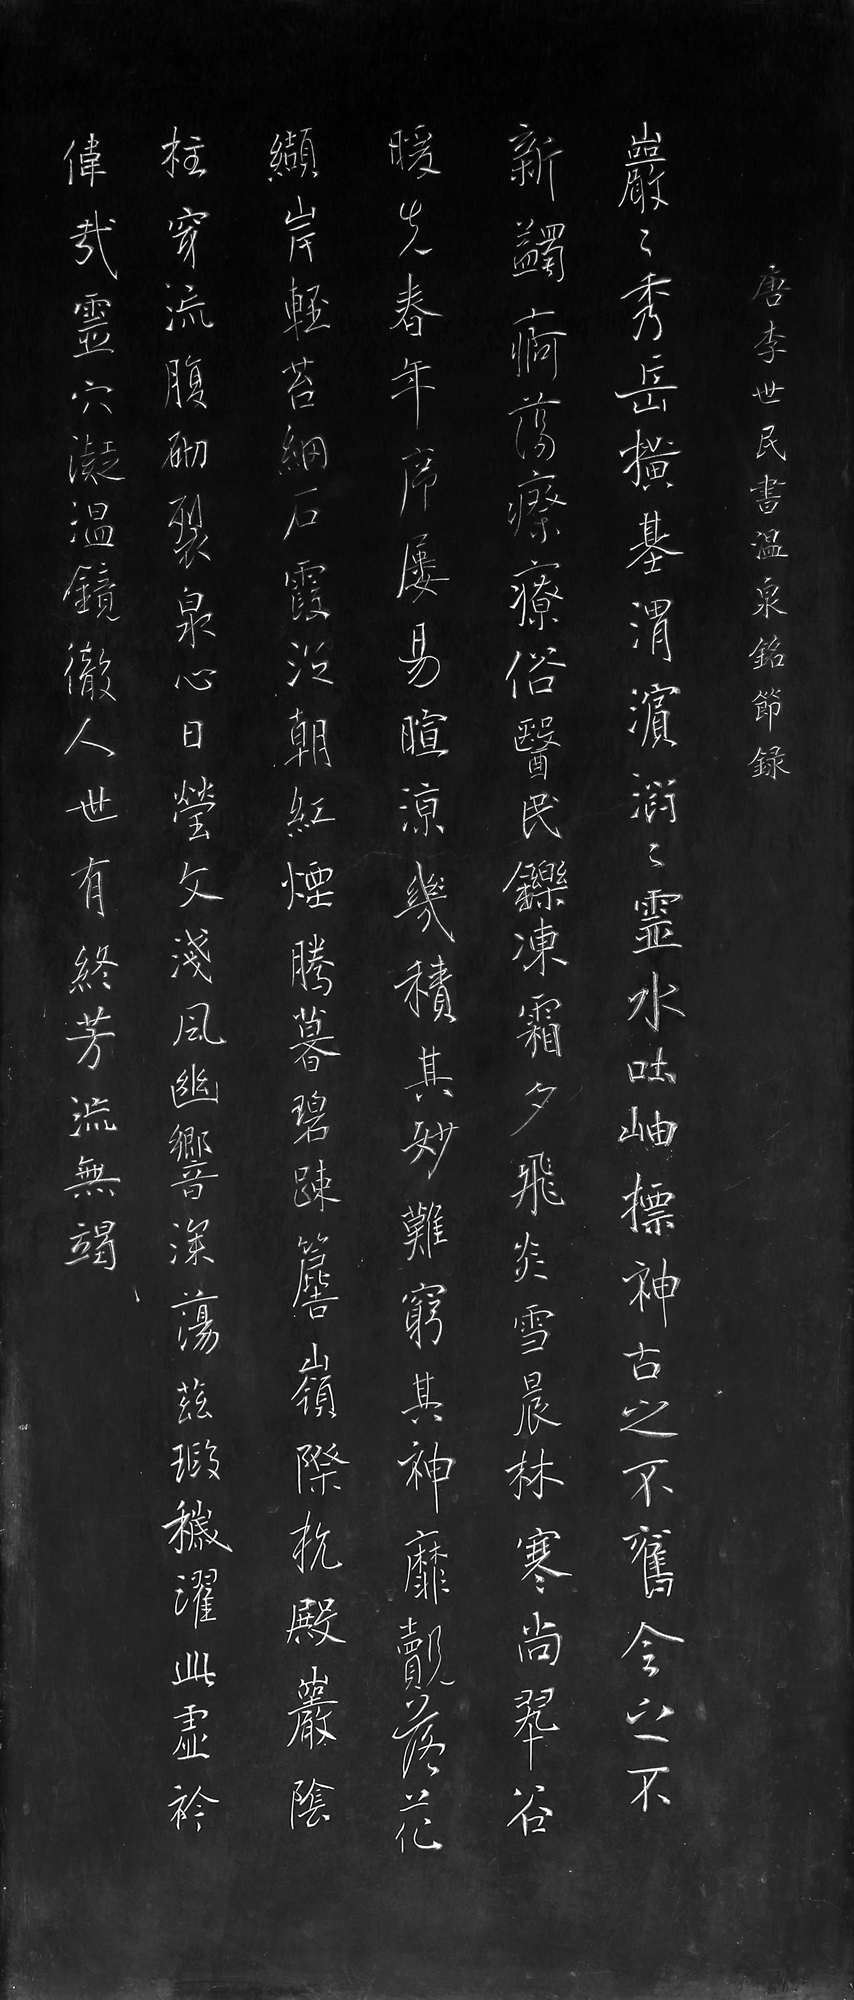 唐李世民書温泉銘節録
巖〻秀岳橫基渭濱滔〻靈水吐岫標神古之不舊今之不
新蠲痾蕩瘵療俗醫民鑠凍霜夕飛炎雪晨林寒尚翠谷
暖先春年序屢易暄涼幾積其妙難窮其神靡覿落花
纈岸輕苔網石霞泛朝紅煙騰暮碧疎簷嶺際抗殿巖陰
柱穿流腹砌裂泉心日瑩文淺風幽響深蕩茲瑕穢濯此虛衿
偉哉靈穴凝温鏡徹人世有終芳流無竭